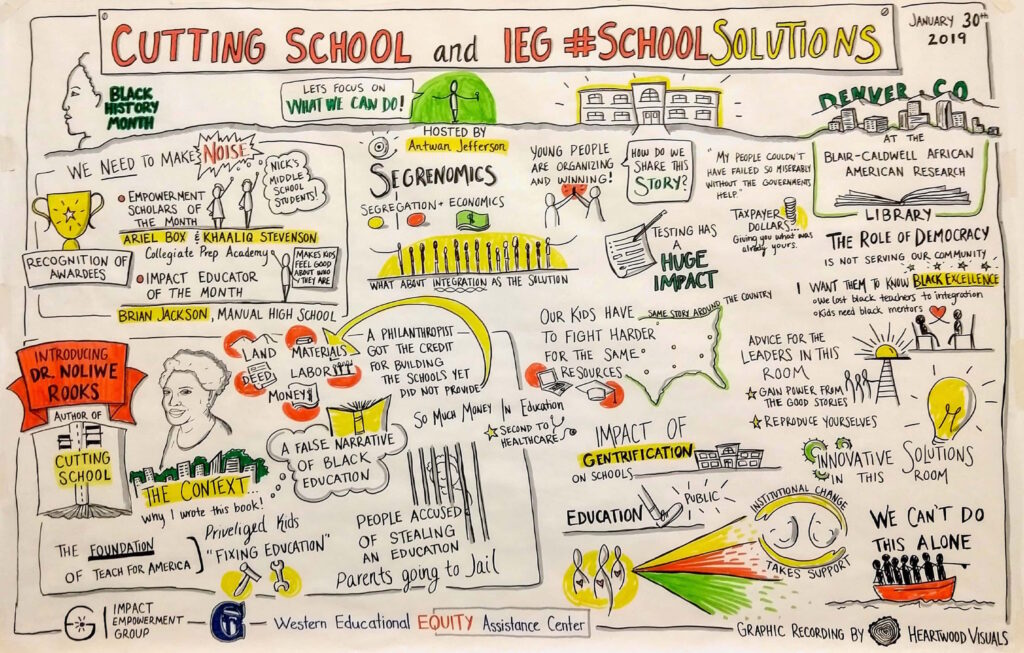 CUTTING SCHOOL and IEG #SCHOOLSOLUTIONS
JANUARY 30th
2019
BLACK
HISTORY
MONTH
LETS FOCUS ON
WHAT WE CAN DO!
HOSTED BY
Antwan Jefferson
DENVER, CO
AT THE
BLAIR-CALDWELL AFRICAN
AMERICAN RESEARCH
LIBRARY
WE NEED TO MAKE NOISE
NICK'S
MIDDLE
SCHOOL
STUDENTS!
EMPOWERMENT
SCHOLARS OF
THE MONTH
ARIEL BOX & KHAALIQ STEVENSON
Collegiate Prep Academy
RECOGNITION OF
AWARDEES
IMPACT EDUCATOR
OF THE MONTH
MAKES KIDS
FEEL GOOD
ABOUT WHO
THEY ARE
BRIAN JACKSON, MANUAL HIGH SCHOOL
SEGRENOMICS
SEGREGATION + ECONOMICS
WHAT ABOUT INTEGRATION AS THE SOLUTION
YOUNG PEOPLE
ARE ORGANIZING
AND WINNING!
HOW DO WE
SHARE THIS
STORY?
"MY PEOPLE COULDN'T
HAVE FAILED SO MISERABLY
WITHOUT THE GOVERNMENTS
HELP."
TAXPAYER
DOLLARS...
Giving you what was
already yours.
TESTING HAS
A
HUGE
IMPACT
THE ROLE OF DEMOCRACY
IS NOT SERVING OUR COMMUNITY
I WANT THEM TO KNOW BLACK EXCELLENCE
We lost black teachers to integration
Kids need black mentors
INTRODUCING
DR. NOLIWE
ROOKS
AUTHOR OF
CUTTING
SCHOOL
LAND
DEED
MATERIALS
LABOR
MONEY
A PHILANTHROPIST
GOT THE CREDIT
FOR BUILDING
THE SCHOOLS YET
DID NOT PROVIDE
A FALSE NARRATIVE
OF BLACK
EDUCATION
THE CONTEXT...
Why I wrote this book!
THE FOUNDATION
OF TEACH FOR AMERICA
Priveliged Kids
"FIXING EDUCATION"
So Much Money In Education
SECOND TO
HEALTHCARE
PEOPLE ACCUSED
OF STEALING
AN EDUCATION
Parents going to Jail
OUR KIDS HAVE
TO FIGHT HARDER
FOR THE SAME
RESOURCES
SAME STORY AROUND THE COUNTRY
IMPACT OF
GENTRIFICATION
ON SCHOOLS
ADVICE FOR THE
LEADERS IN THIS
ROOM
GAIN POWER FROM
THE GOOD STORIES
REPRODUCE YOURSELVES
INNOVATIVE SOLUTIONS
IN THIS ROOM
EDUCATION
PUBLIC
INSTITUTIONAL CHANGE
TAKES SUPPORT
WE CAN'T DO
THIS ALONE
IMPACT
EMPOWERMENT
GROUP
Western Educational EQUITY Assistance Center
GRAPHIC RECORDING BY HEARTWOOD VISUALS